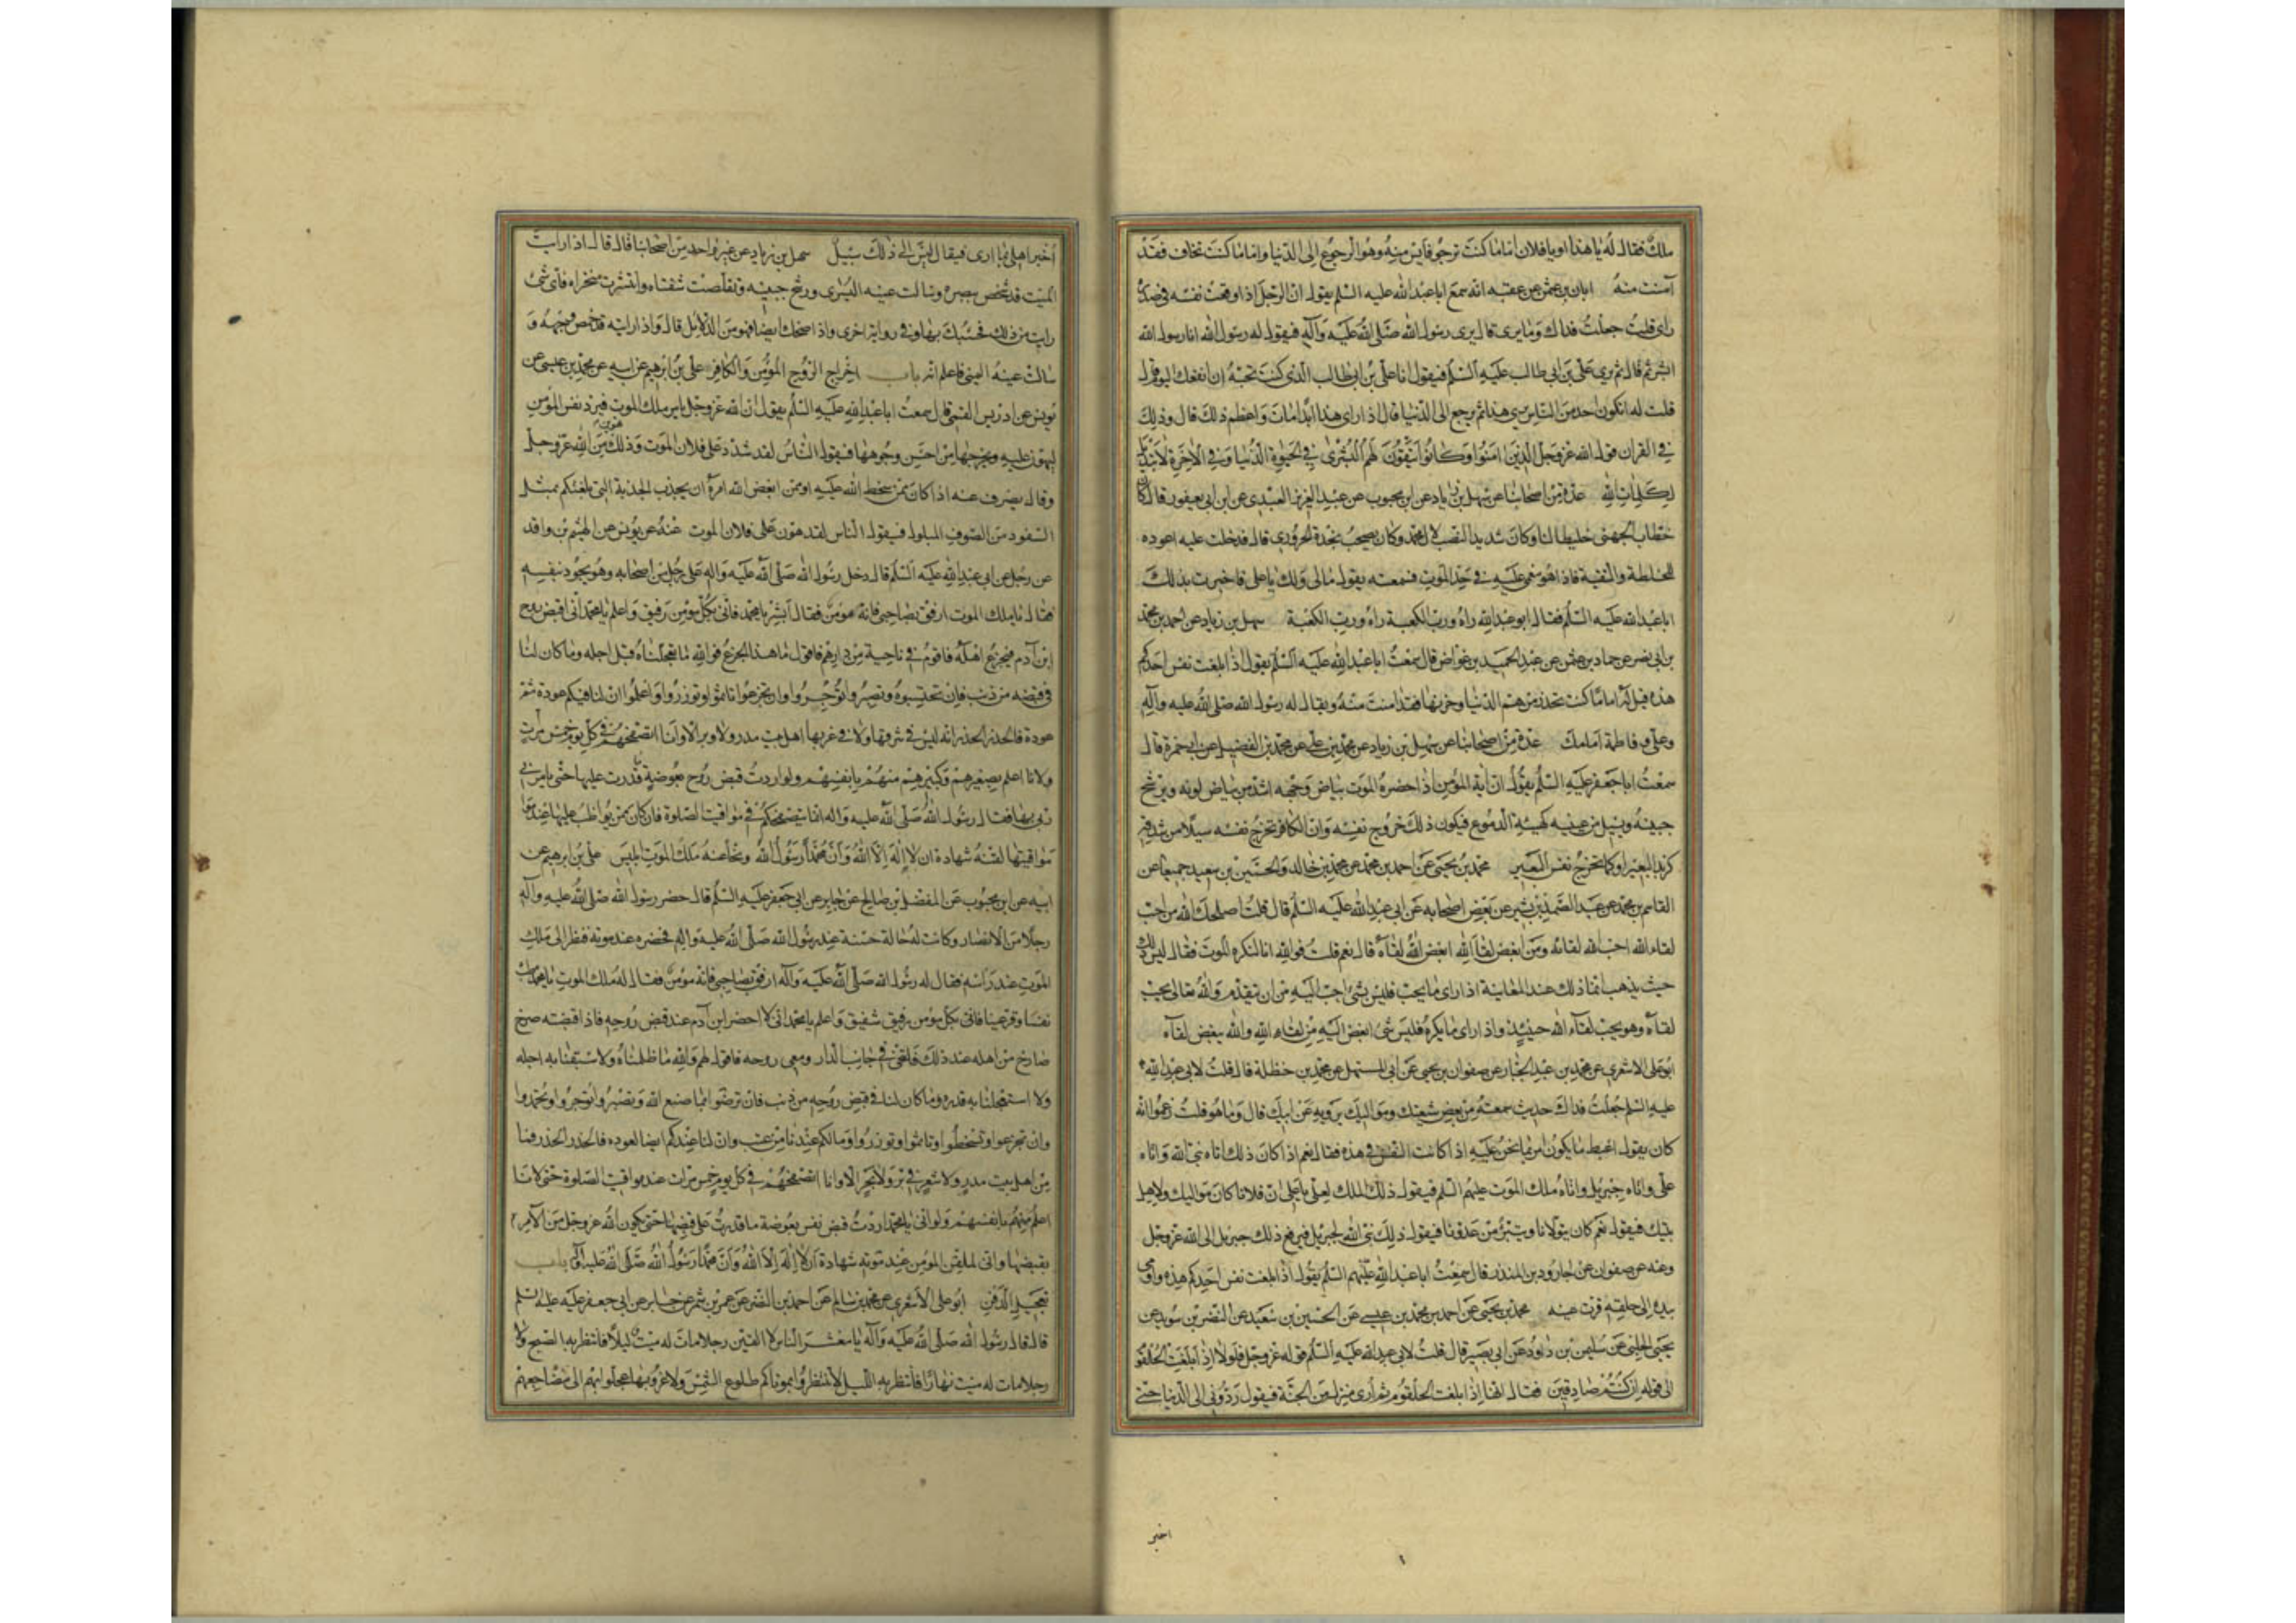 ملك فقال له يا هذا او يا فلان اما ما كنت ترجو فايس منه وهو الرجوع الى الدنيا واما ما كنت تخاف فقد
آمنت منه ابان بن عثمن عن عقبه انه سمع ابا عبد الله عليه السلم يقول ان الرجل اذا وقعت نفسه في صدره
راى قلت جعلت فداك وما يرى قال يرى رسول الله صلى الله عليه وآله فيقول له رسول الله انا رسول الله
ابشر ثم قال ثم يرى على بن ابي طالب عليه السلم فيقول انا على بن ابي طالب الذي كنت تحبه ان انفعك اليوم قال
قلت له ايكون احد من الناس يرى هذا ثم يرجع الى الدنيا قال اذا راى هذا ابدا مات واعظم ذلك قال وذلك
في القران قول الله عز وجل الذين امنوا وكانوا يتقون لهم البشرى في الحيوة الدنيا وفي الآخرة لا تبديل
لكلمات الله عدة من اصحابنا عن سهل بن زياد عن ابن محبوب عن عبد العزيز العبدى عن ابن ابي يعفور قال كان
خطاب الجهنى خليطا لنا وكان شديد النصب لآل محمد وكان يصحب نجدة الحرورى قال فدخلت عليه اعوده
للخلطة والتقية فاذا هو مغمى عليه في حد الموت فسمعته يقول مالى ولك يا على فاخبرت بذلك
ابا عبد الله عليه السلم فقال ابو عبد الله راه ورب الكعبة راه ورب الكعبة سهل بن زياد عن احمد بن محمد
بن ابي نصر عن حماد بن عثمن عن عبد الحميد بن غواض قال سمعت ابا عبد الله عليه السلم يقول اذا بلغت نفس احدكم
هذه قيل له اما ما كنت تحذر من هم الدنيا وحزنها فقد امنت منه ويقال له رسول الله صلى الله عليه وآله
وعلى وفاطمة امامك عدة من اصحابنا عن سهل بن زياد عن محمد بن على عن محمد بن الفضيل عن ابي حمزة قال
سمعت ابا جعفر عليه السلم يقول ان آية المؤمن اذا حضره الموت بياض وجهه اشد من بياض لونه ويرشح
جبينه ويسيل من عينيه كهيئة الدموع فيكون ذلك خروج نفسه وان الكافر تخرج نفسه سيلا من شدقه
كزبد البعير او كما تخرج نفس البعير محمد بن يحيى عن احمد بن محمد عن محمد بن خالد والحسين بن سعيد جميعا عن
القاسم بن محمد عن عبد الصمد بن بشير عن بعض اصحابه عن ابي عبد الله عليه السلم قال قلت اصلحك الله من احب
لقاء الله احب الله لقائه ومن ابغض لقاء الله ابغض الله لقاءه قال نعم قلت فوالله انا لنكره الموت فقال ليس ذلك
حيث يذهب انما ذلك عند المعاينة اذا راى ما يحب فليس شئ احب اليه من ان يتقدم والله تعالى يحب
لقاءه وهو يحب لقآء الله حينئذ واذا راى ما يكره فليس شئ ابغض اليه من لقاء الله والله يبغض لقاءه
ابو على الاشعرى عن محمد بن عبد الجبار عن صفوان بن يحيى عن ابي المستهل عن محمد بن حنظلة قال قلت لابي عبد الله
عليه السلم جعلت فداك حديث سمعته من بعض شيعتك ومواليك يرويه عن ابيك قال وما هو قلت زعموا انه
كان يقول اغبط ما يكون امرئ بما نحن عليه اذا كانت النفس في هذه فقال نعم اذا كان ذلك اتاه نبي الله واتاه
على واتاه جبريل واتاه ملك الموت عليهم السلم فيقول ذلك الملك لعلى يا على ان فلانا كان مواليا لك ولاهل
بيتك فيقول نعم كان يتولانا ويتبرء من عدونا فيقول ذلك نبي الله لجبريل فيرفع ذلك جبريل الى الله عز وجل
وعنه عن صفوان عن جارود بن المنذر قال سمعت ابا عبد الله عليه السلم يقول اذا بلغت نفس احدكم هذه واومى
بيده الى حلقه قرت عينه محمد بن يحيى عن احمد بن محمد بن عيسى عن الحسين بن سعيد عن النضر بن سويد عن
يحيى الحلبي عن سليمن بن داود عن ابي بصير قال قلت لابي عبد الله عليه السلم قوله عز وجل فلولا اذا بلغت الحلقوم
الى قوله ان كنتم صادقين فقال انها اذا بلغت الحلقوم ثم أرى منزله من الجنة فيقول ردونى الى الدنيا حتى
اخبر
اخبر اهلى بما ارى فيقال ليس الى ذلك سبيل سهل بن زياد عن غير واحد من اصحابنا قال قال اذا رايت
الميت قد شخص ببصره وسالت عينه اليسرى ورشح جبينه وتقلصت شفتاه وانتشرت منخراه فاى شئ
رايت من ذلك فحسبك بها وفي رواية اخرى واذا ضحك ايضا فهو من الدلايل قال واذا رايته قد خمص وجهه و
سالت عينه اليمنى فاعلم انه باب اخراج الروح المؤمن والكافر على بن ابرهيم عن ابيه عن محمد بن عيسى عن
يونس عن ادريس القمى قال سمعت ابا عبد الله عليه السلم يقول ان الله عز وجل يامر ملك الموت فيرد نفس المؤمن
ليهون عليه ويخرجها من احسن وجوهها فيقول الناس لقد شدد على فلان الموت وذلك تهوين من الله عز وجل
وقال يصرف عنه اذا كان ممن سخط الله عليه او ممن ابغض الله امره ان يجذب الجذبة التي بلغتكم بمثل
السفود من الصوف المبلول فيقول الناس لقد هون على فلان الموت عنه عن يونس عن الهيثم بن واقد
عن رجل عن ابي عبد الله عليه السلم قال دخل رسول الله صلى الله عليه واله على رجل من اصحابه وهو يجود بنفسه
فقال يا ملك الموت ارفق بصاحبي فانه مؤمن فقال ابشر يا محمد فانى بكل مؤمن رفيق واعلم يا محمد انى اقبض روح
ابن آدم فيجزع اهله فاقوم في ناحية من دارهم فاقول ما هذا الجزع فوالله ما تعجلناه قبل اجله وما كان لنا
في قبضه من ذنب فان تحتسبوه وتصبروا تؤجروا وان تجزعوا تاثموا وتوزروا واعلموا ان لنا فيكم عودة ثم
عودة فالحذر الحذر انه ليس في شرقها ولا في غربها اهل بيت مدر ولا وبر الا وانا اتصفحهم في كل يوم خمس مرات
ولانا اعلم بصغيرهم وكبيرهم منهم بانفسهم ولو اردت قبض روح بعوضة ما قدرت عليها حتى يامرنى
ربي بها فقال رسول الله صلى الله عليه واله انما يتصفحكم في مواقيت الصلوة فان كان ممن يواظب عليها عند
مواقيتها لقنه شهادة ان لا إله الا الله وان محمدا رسول الله ونحا عنه ملك الموت ابليس على بن ابرهيم عن
ابيه عن ابن محبوب عن المفضل بن صالح عن جابر عن ابي جعفر عليه السلم قال حضر رسول الله صلى الله عليه وآله
رجلا من الانصار وكانت له حالة حسنة عند رسول الله صلى الله عليه واله فحضره عند موته فنظر الى ملك
الموت عند راسه فقال له رسول الله صلى الله عليه وآله ارفق بصاحبي فانه مؤمن فقال له ملك الموت يا محمد طب
نفسا وقر عينا فانى بكل مؤمن رفيق شفيق واعلم يا محمد انى لاحضر ابن آدم عند قبض روحه فاذا قبضته صرخ
صارخ من اهله عند ذلك فاتنحى في جانب الدار ومعى روحه فاقول لهم والله ما ظلمناه ولا سبقنا به اجله
ولا استعجلنا به قدره وما كان لنا في قبض روحه من ذنب فان ترضوا بما صنع الله وتصبروا تؤجروا وتحمدوا
وان تجزعوا وتسخطوا تاثموا وتوزروا وما لكم عندنا من عتب وان لنا عندكم ايضا لعوده فالحذر الحذر فما
من اهل بيت مدر ولا شعر في بر ولا بحر الا وانا اتصفحهم في كل يوم خمس مرات عند مواقيت الصلوة حتى لانا
اعلم منهم بانفسهم ولو انى يا محمد اردت قبض نفس بعوضة ما قدرت على قبضها حتى يكون الله عز وجل هو الآمر
بقبضها وانى لملقن المؤمن عند موته شهادة ان لا إله الا الله وان محمدا رسول الله صلى الله عليه وآله باب
تعجيل الدفن ابو على الاشعرى عن محمد بن سالم عن احمد بن النضر عن عمرو بن شمر عن جابر عن ابي جعفر عليه السلم
قال قال رسول الله صلى الله عليه وآله يا معشر الناس لا الفين رجلا مات له ميت ليلا فانتظر به الصبح ولا
رجلا مات له ميت نهارا فانتظر به الليل لا تنتظروا بموتاكم طلوع الشمس ولا غروبها عجلوا بهم الى مضاجعهم